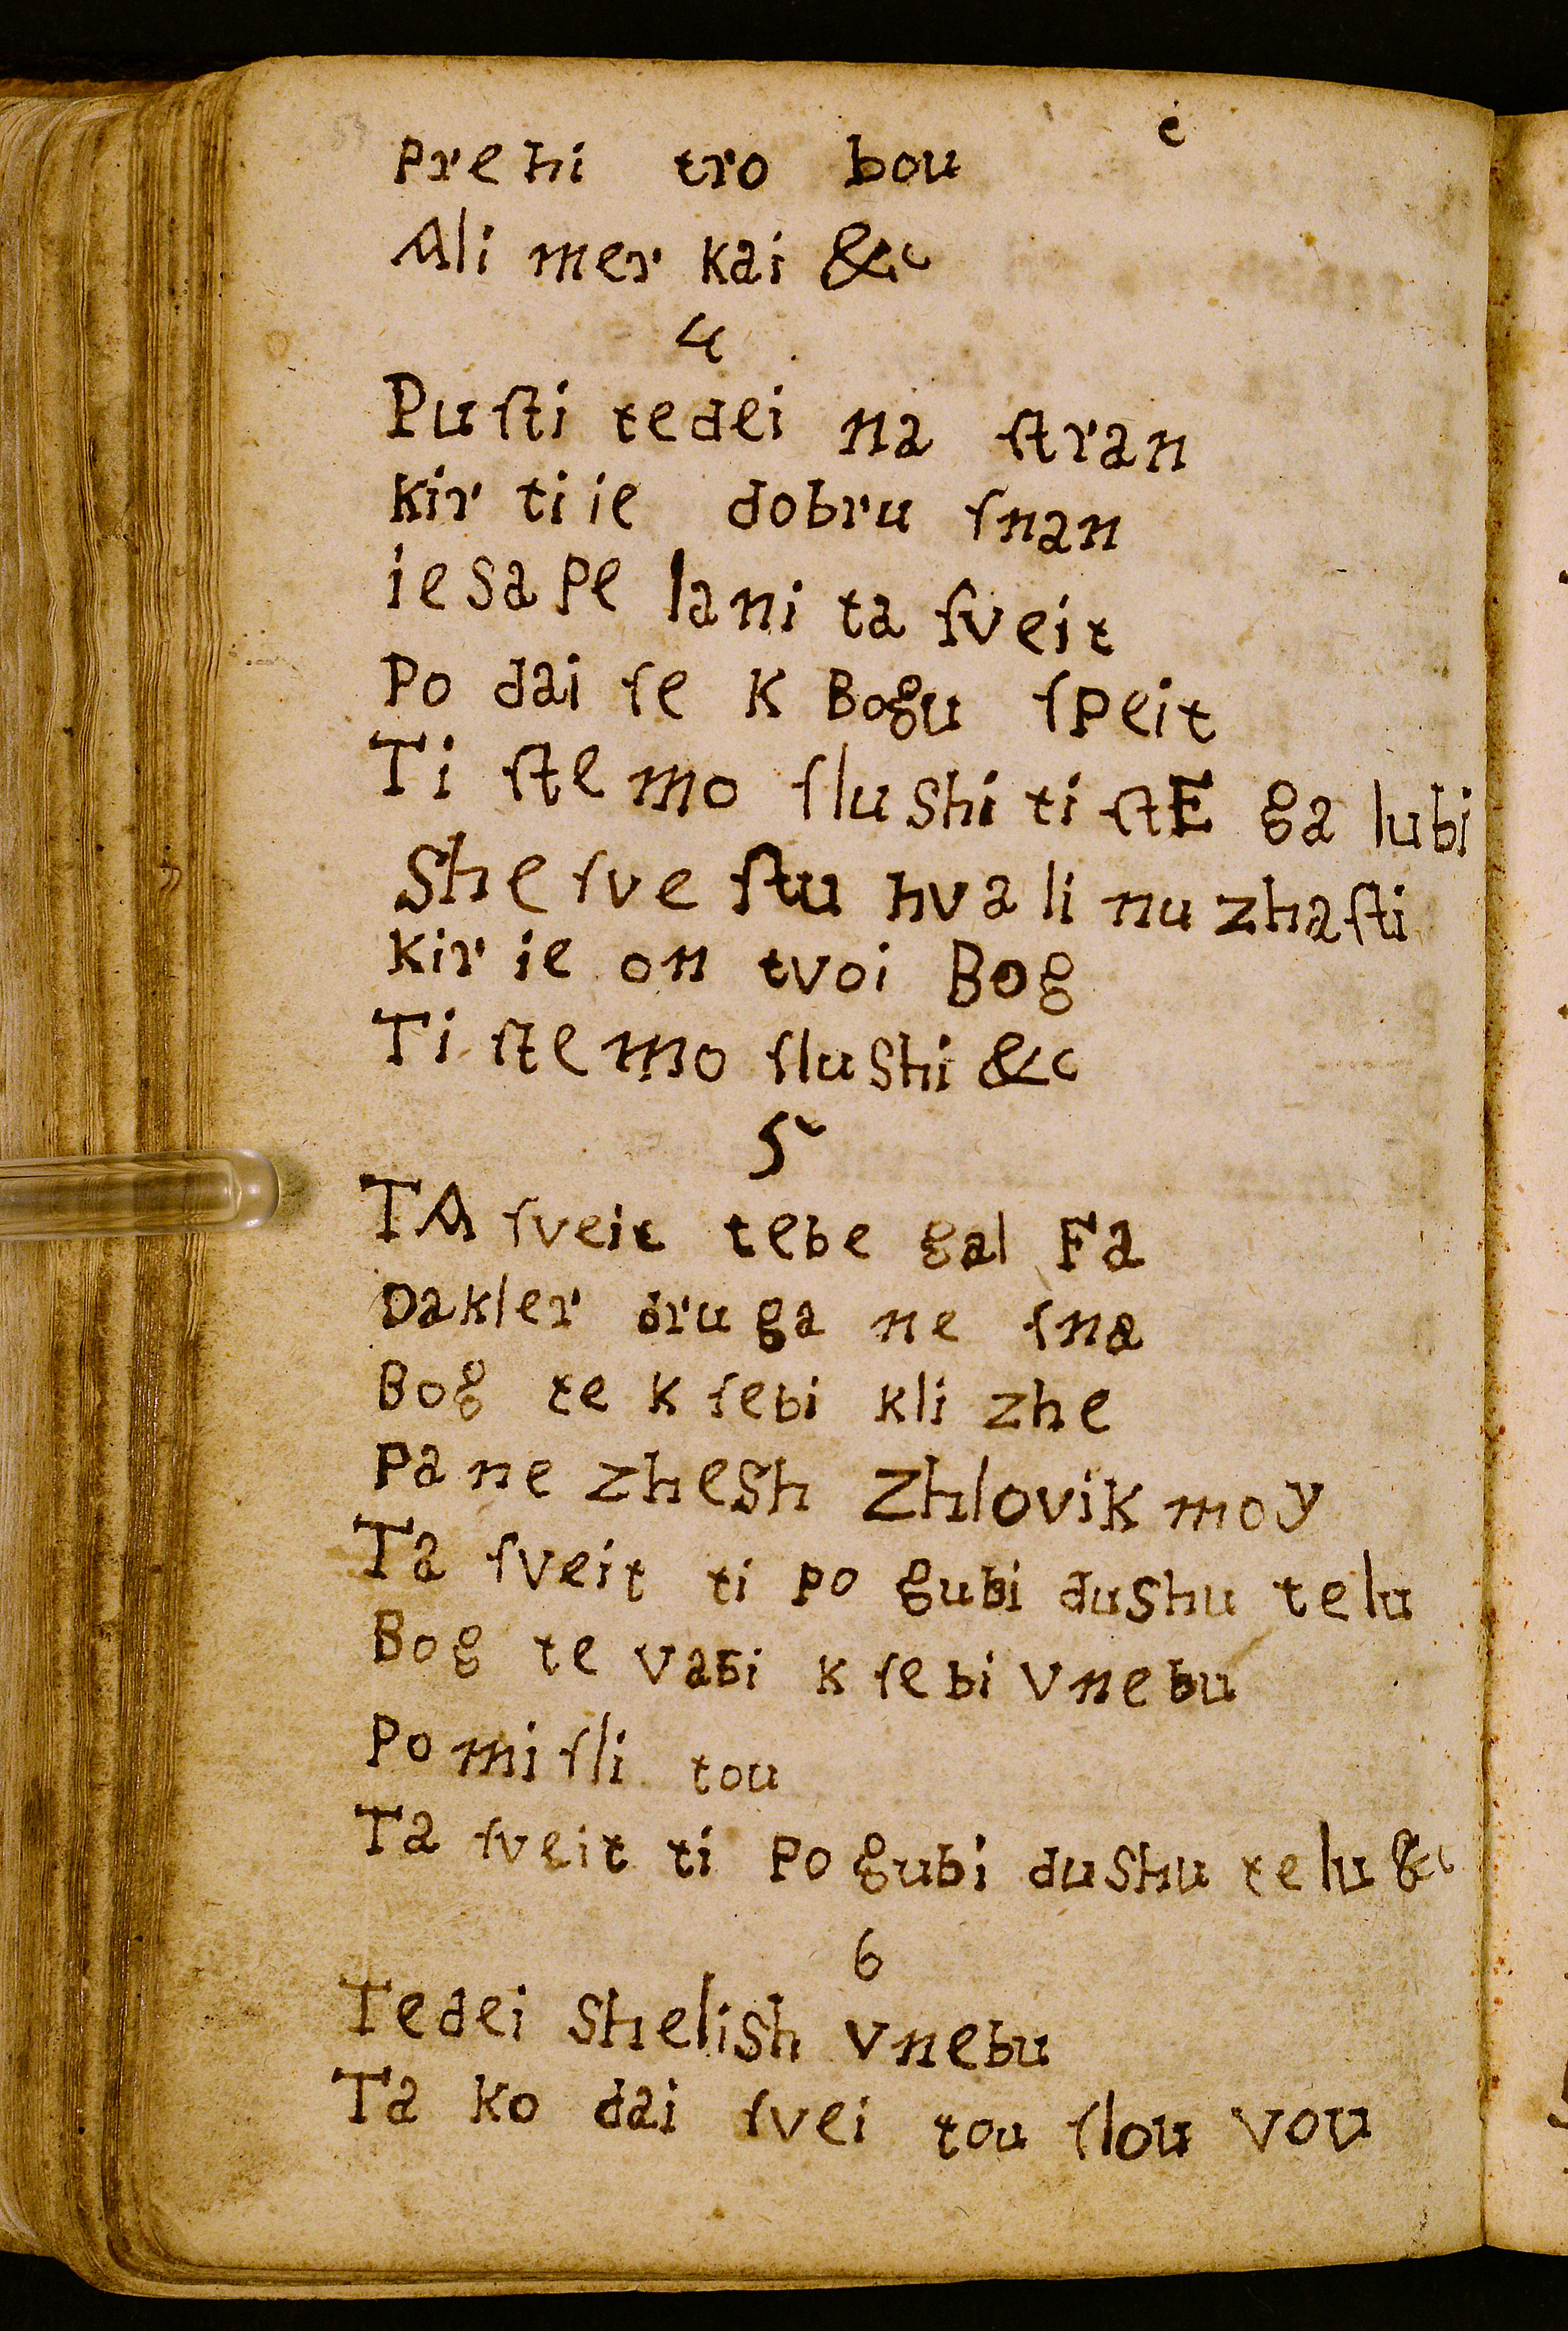 ė
prehi tro bou
Ali mer kai &c
4
Puſti tedei na ſtran
kir ti ie dobru ſnan
ie sa pe lani ta ſveit
Po dai ſe k Bogu ſpeit
Ti ſte mo ſlu shi ti ſtE ga lubi
She ſve ſtu hva li nu zhaſti
kir ie on tvoi Bog
Ti ſte mo ſlu shi &c
5
TA ſveit tebe gal Fa
Dakler dru ga ne ſna
Bog te k ſebi kli zhe
Pa ne zhesh Zhlovik moy
Ta ſveit ti po gubi dushu telu
Bog te vabi k ſe bi vnebu
Po mi ſli tou
Ta ſveit ti Po gubi dushu te lu &c
6
Tedei shelish vnebu
Ta ko dai ſvei tou ſlou vou